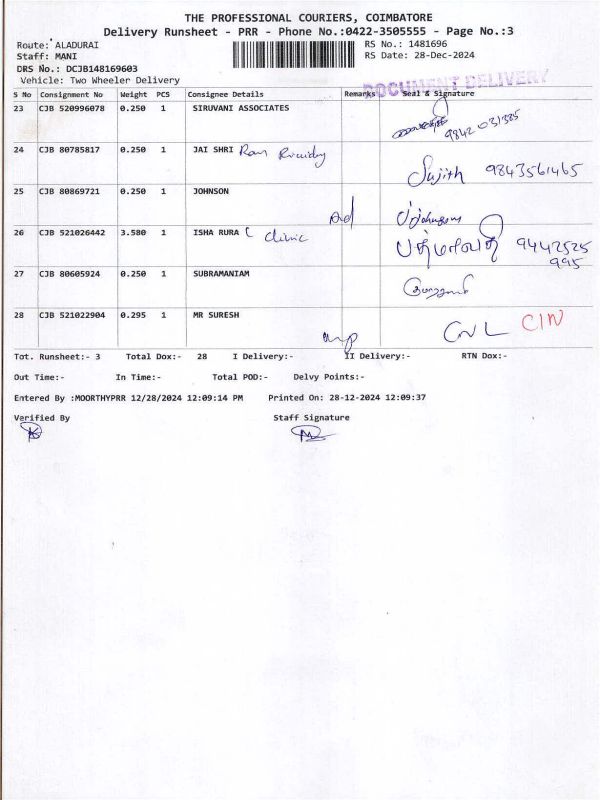 THE PROFESSIONAL COURIERS, COIMBATORE
Delivery Runsheet - PRR - Phone No.:0422-3505555 - Page No.:3
Route: ALADURAI RS No.: 1481696
Staff: MANI RS Date: 28-Dec-2024
DRS No.: DCJB148169603
Vehicle: Two Wheeler Delivery
DOCUMENT DELIVERY
S No Consignment No Weight PCS Consignee Details Remarks Seal & Signature
23 CJB 520996078 0.250 1 SIRUVANI ASSOCIATES
9842 031385
24 CJB 80785817 0.250 1 JAI SHRI Ram
Sujith 9843561465
25 CJB 80869721 0.250 1 JOHNSON
26 CJB 521026442 3.580 1 ISHA RURA L Clinic
பத்மாவதி 9442525
995
27 CJB 80605924 0.250 1 SUBRAMANIAM
28 CJB 521022904 0.295 1 MR SURESH
CNL CIN
Tot. Runsheet:- 3 Total Dox:- 28 I Delivery:- II Delivery:- RTN Dox:-
Out Time:- In Time:- Total POD:- Delvy Points:-
Entered By :MOORTHYPRR 12/28/2024 12:09:14 PM Printed On: 28-12-2024 12:09:37
Verified By Staff Signature